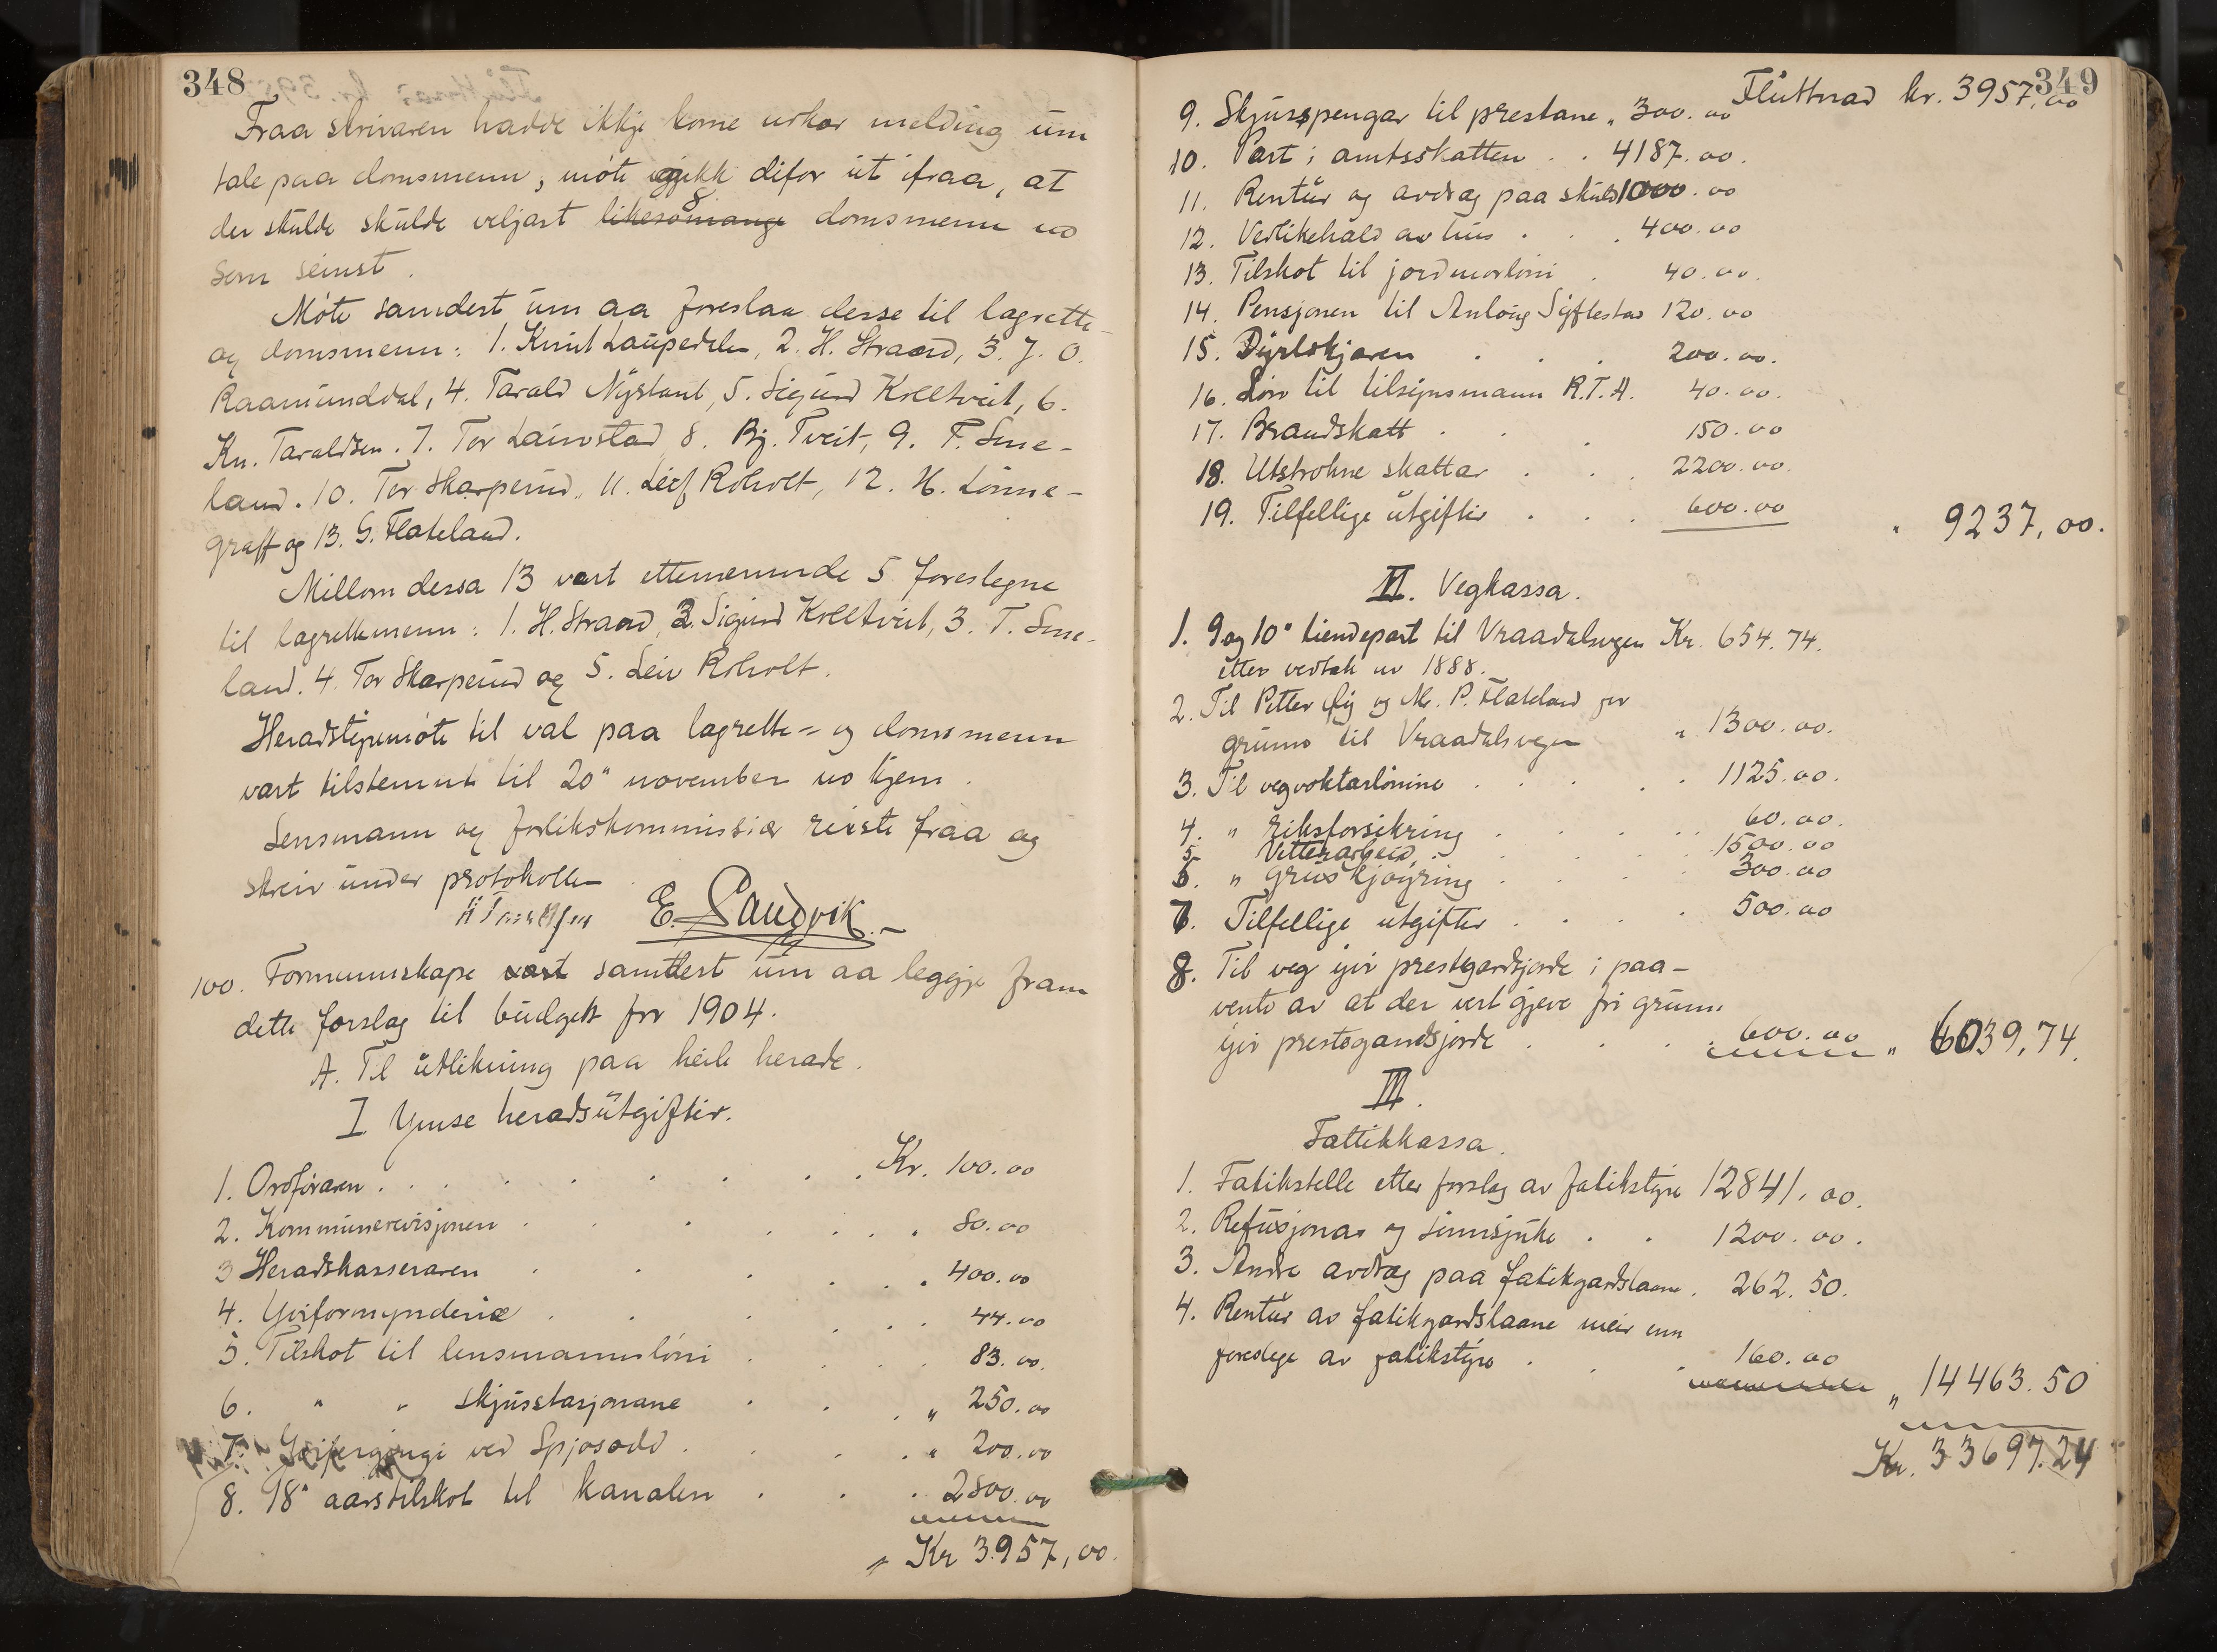 348
Fraa skrivaren hadde ikkje kome nokor melding um
tale paa domsmenn, møte gjekk difor ut ifraa, at
der skulde skulde veljast likesomange domsmenn no
som seinst.
Møte samdest um aa foreslaa desse til lagrette-
og domsmenn: 1. Knut Laupedalen, 2. H. Straand, 3. J. O.
Raamunddal, 4. Tarald Nystaul, 5. Sigurd Kvelltveit, 6.
Kn. Taraldsen. 7. Tor Laimstad, 8. Bj. Tveit, 9. T. Sme-
land. 10. Tor Skarperud, 11. Leif Roholt, 12. H. Lønne-
graff og 13. G. Flateland.
Millom dessa 13 vart etternemnde 5 foreslegne
til lagrettemenn: 1. H. Straand, 2. Sigurd Kvelltveit, 3. T. Sme-
land. 4. Tor Skarperud og 5. Leiv Roholt.
Heradstyremøte til val paa lagrette- og domsmenn
vart tilstemnt til 20" november no kjem.
Lensmann og forlikskommissær reiste fraa og
skreiv under protokollen
E. Sandvik.
100. Formannskape vart samdest um aa leggje fram
dette forslag til budgett for 1904.
A. Til utlikning paa heile herade.
I Ymse heradsutgiftir.
1. Ordføraren . . . . . . . . Kr. 100.00
2. Kommunerevisjonen . . . . . . 80.00
3 Heradskasseraren . . . . . . 400.00
4. Yviformynderiæ . . . . . . 44.00
5. Tilskot til lensmannsløni . . . . 83.00.
6. " " skjusstasjonane . . . " 250.00
7. ved Spjosodd . . . " 200.00
8. 98" aarstilskot til kanalen . . . 2800.00
" Kr 3957,00.
349
Fluttnad kr. 3957,00
9. Skjusspengar til prestane " 300.00
10. Part i amtsskatten . . 4187.00.
11. Rentur og avdrag paa skuld 1000.00
12. Vedlikehald av hus . . . 400.00
13. Tilskot til jordmorløni . 40.00.
14. Pensjonen til Anlaug Syftestad 120.00
15. Dyrlækjaren . . . 200.00.
16. Løn til tilsynsmann R.T.A. 40.00.
17. Brandskatt . . . 150.00
18. Utstrokne skattar . . . 2200.00.
19. Tilfellige utgiftir . . . 600.00
" 9237,00.
II. Vegkassa.
1. 9 og 10" tiendepart til Vraadalsvegen Kr. 654.74.
etter vedtak av 1888.
2. Til Petter Øy og M. P. Flateland for
grunn til Vraadalsvegen " 1300.00.
3. Til vegvoktarlønine . . . . 1125.00.
4. " riksforsikring . . . . . 60.00.
5 Vetterarbeid. . . . . . 1500.00
6. " gruskjøyring . . . . 300.00
7. Tilfellige utgifter . . . . 500.00
8. Til veg yvir prestgardsjorde i paa-
vente av at der vert gjeve fri grunn
yvir prestegardsjorde . . . . 600.00 " 6039,74.
III.
Fattikkassa.
1. Fatikstelle etter forslag av fatikstyre 12841,00.
2. Refusjonar og sinnsjuke . . 1200.00.
3. Andre avdrag paa fatikgardslaane. 262.50.
4. Rentur av fatikgardslaane meir enn
foreslege av fatikstyre . . . 160.00
" 14463.50
Kr. 33697.24